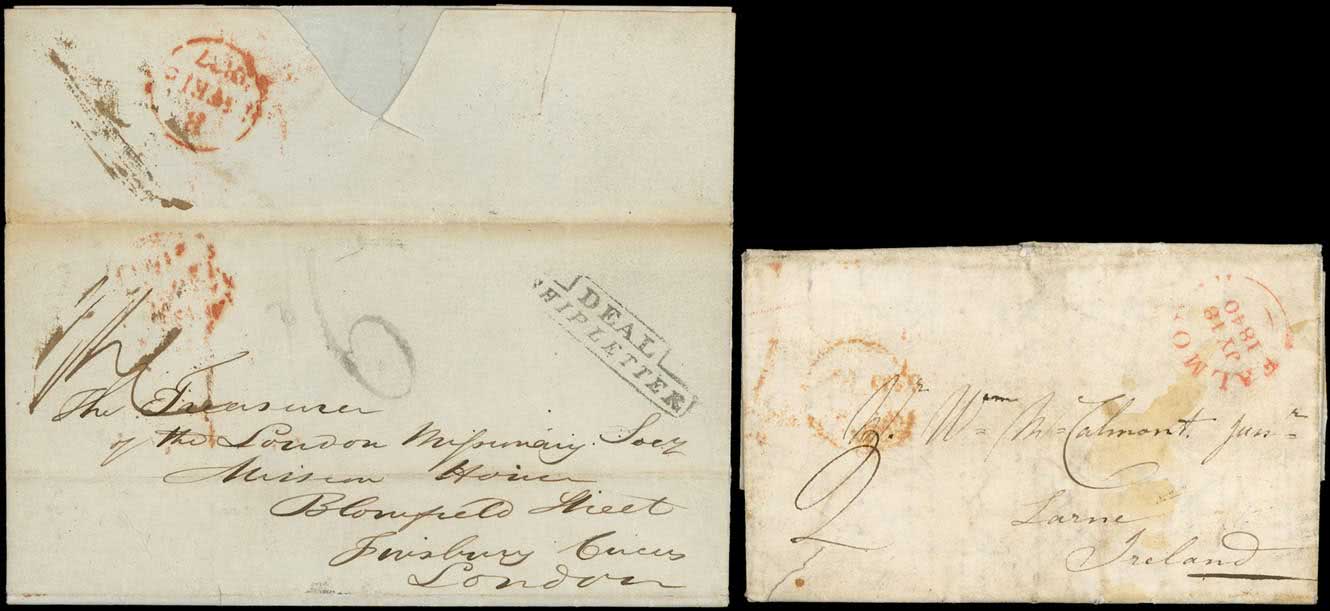 DEAL
SHIPLETTER
The Treasurer
of the London Missionary Socy
Mission House
Blomfield Street
Finsbury Circus
London
FALMO
JY 18
1840
Mr. Wm McCalmont. Junr
Larne
Ireland
2